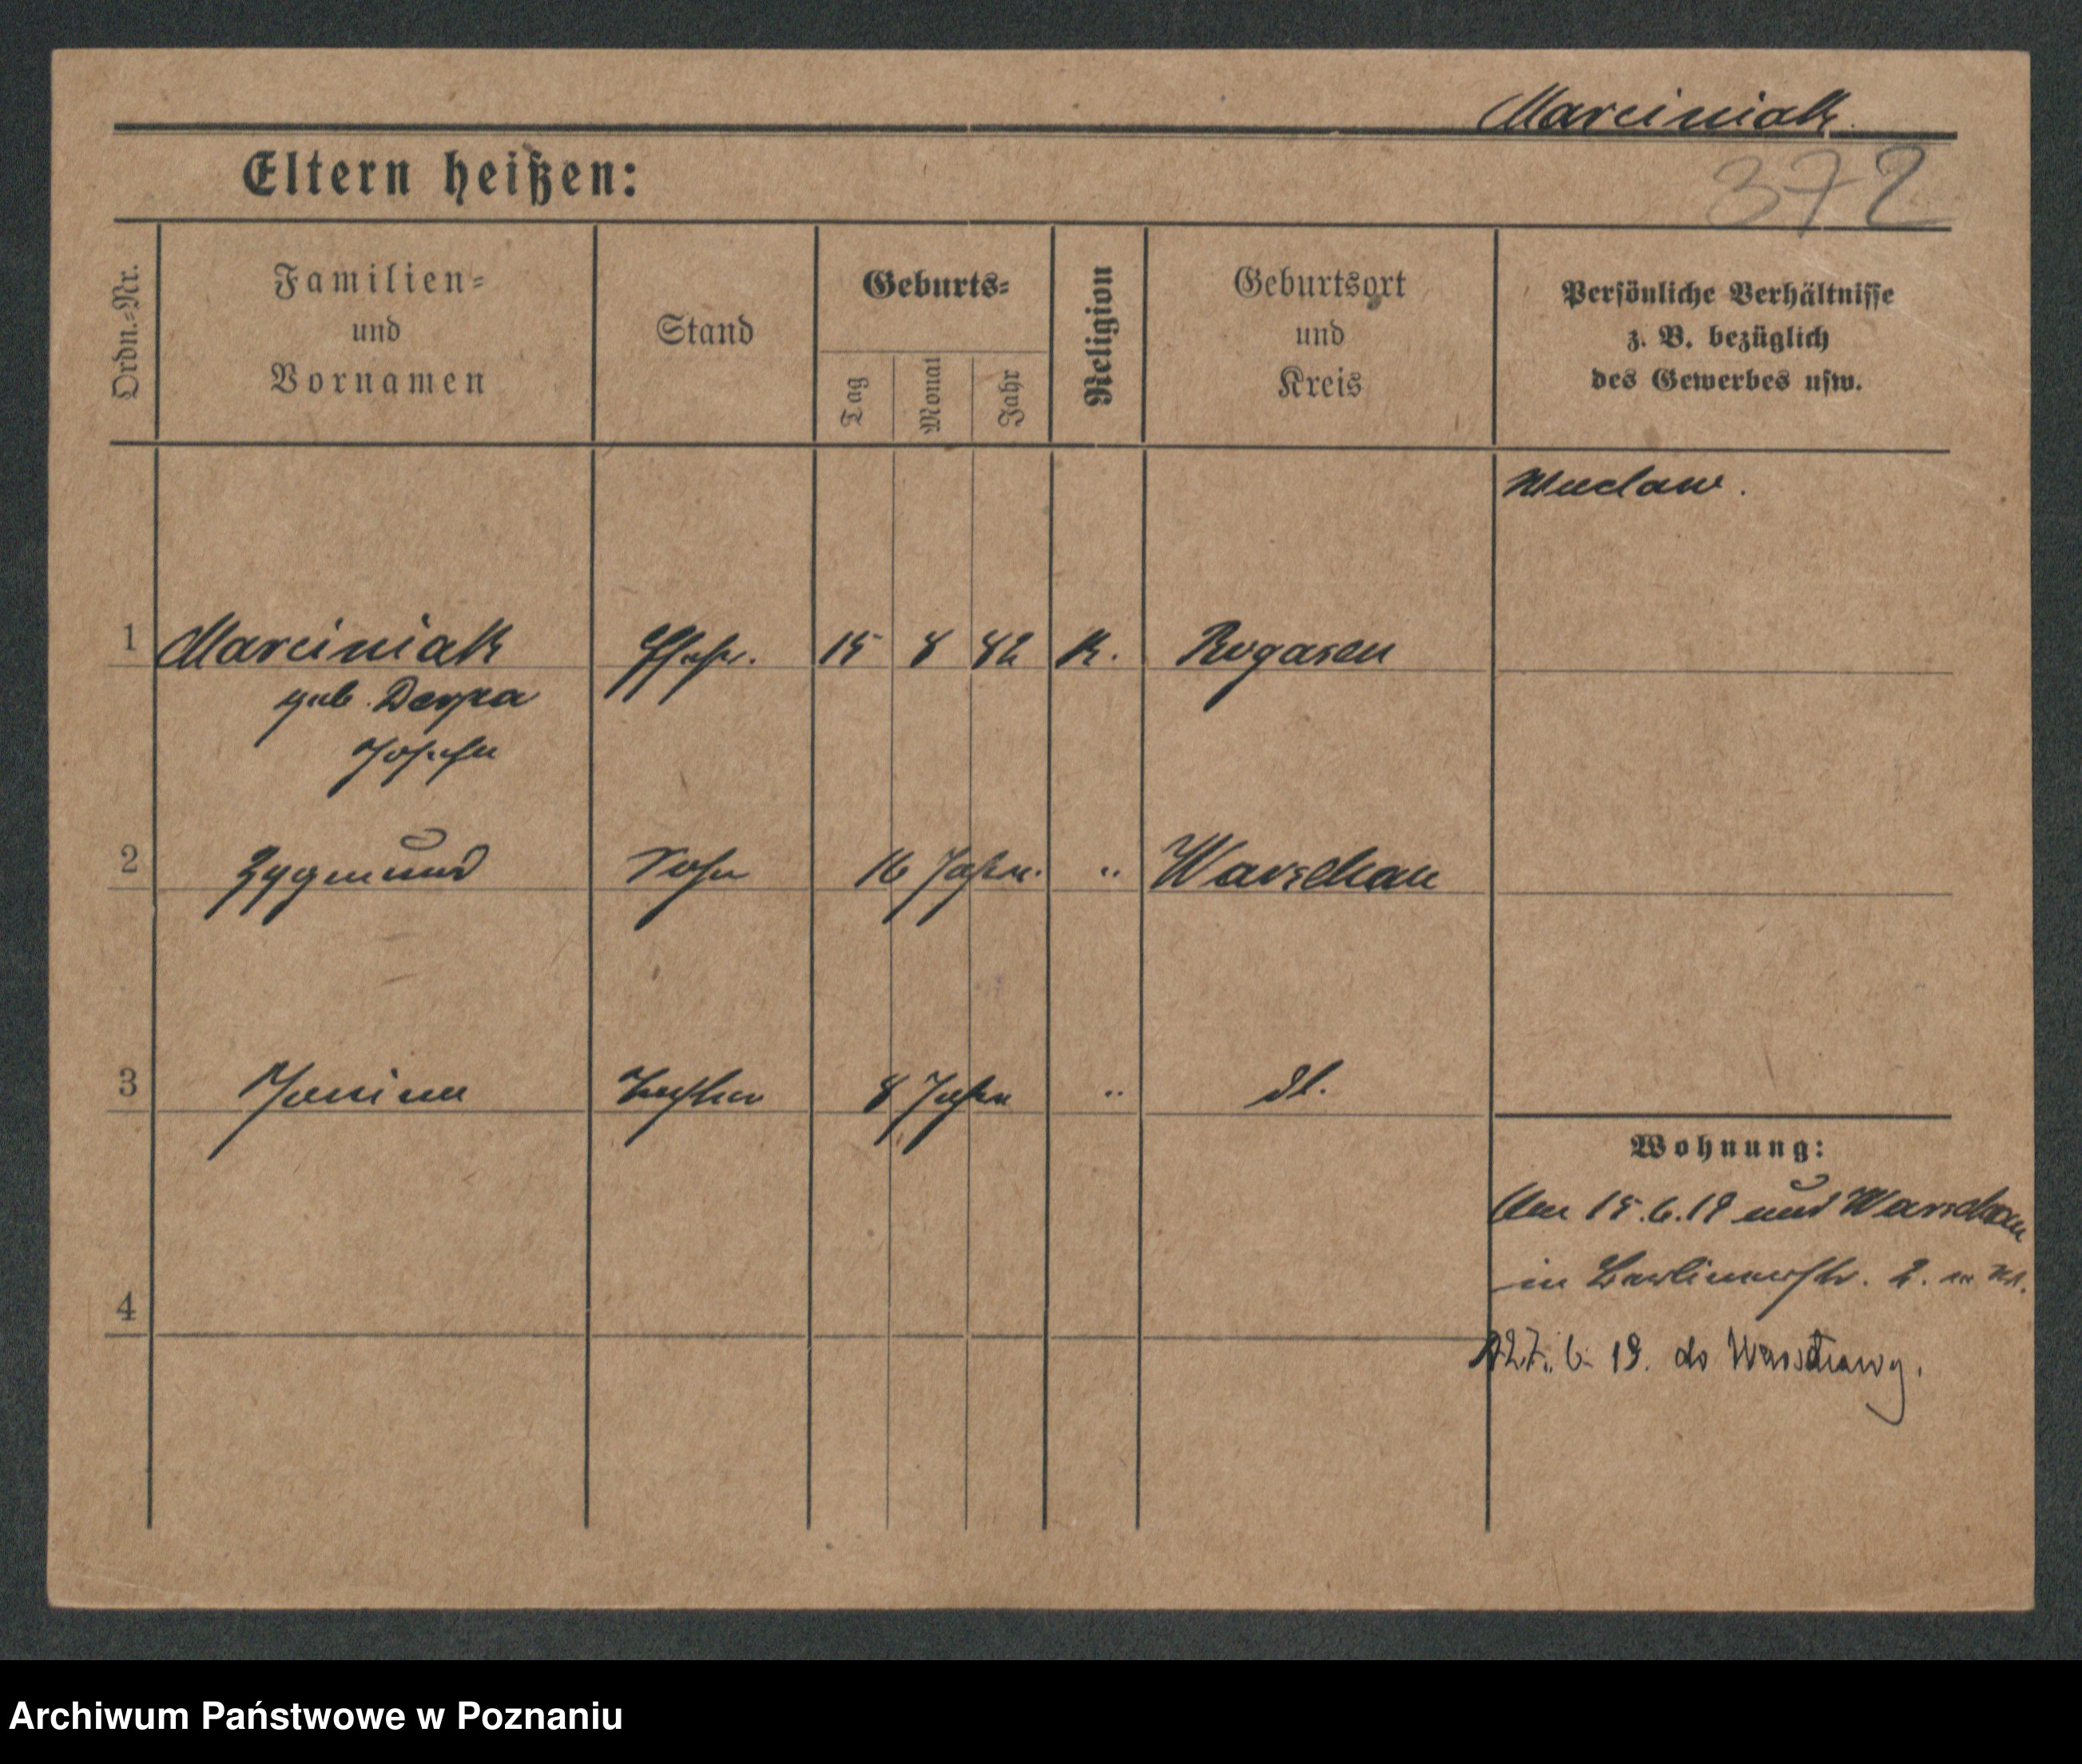 Marciniak.
Eltern heißen:
372
Ordn.=Nr.
Familien=
und
Vornamen
Stand
Geburts=
Tag
Monat
Jahr
Religion
Geburtsort
und
Kreis
Persönliche Verhältnisse
z. B. bezüglich
des Gewerbes usw.
1 Marciniak Ehefr. 15 8 82 K. Rogasen
geb.
2 Zygmund Sohn 16 Jahre. " Warschau
3 Janina Tochter 8 Jahre " dt.
Wohnung:
15.6.19 Warschau
in Berlinerstr. 2.
4
27. 6. 19. do Warschawy.
Archiwum Państwowe w Poznaniu